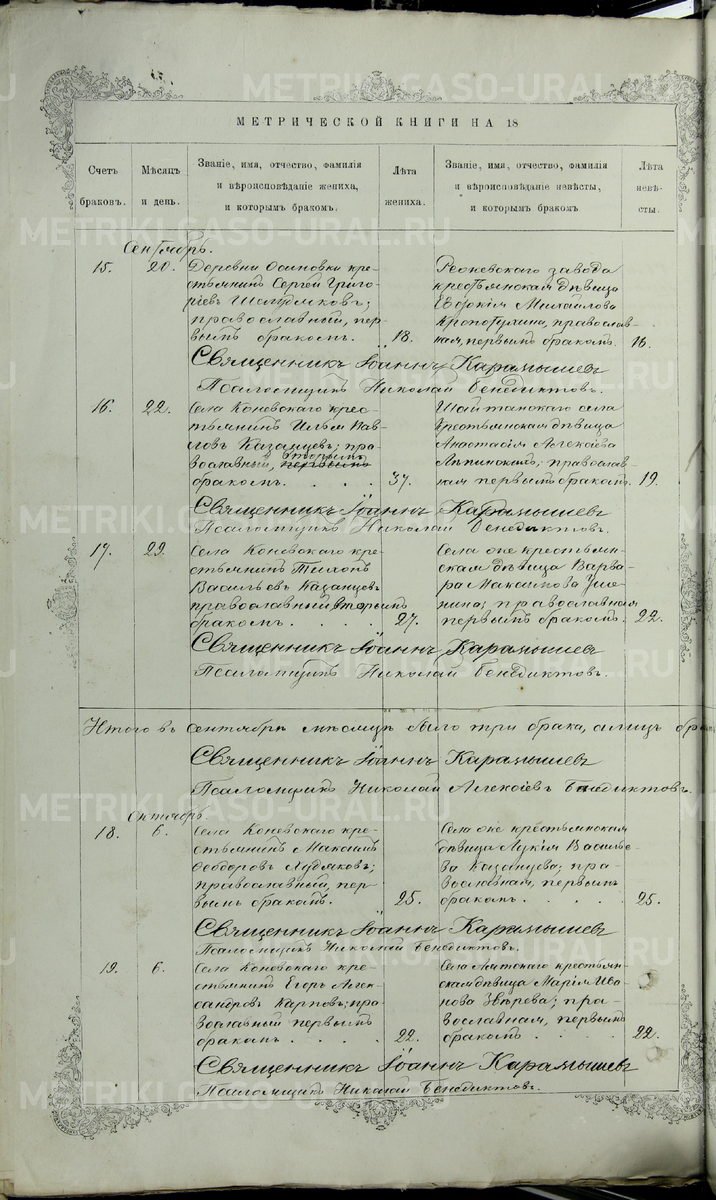 МЕТРИЧЕСКОЙ КНИГИ НА 18
Счетъ браковъ.
Мѣсяцъ и день.
Званіе, имя, отчество, фамилія
и вѣроисповѣданіе жениха,
и которымъ бракомъ.
Лѣта жениха.
Званіе, имя, отчество, фамилія
и вѣроисповѣданіе невѣсты,
и которымъ бракомъ
Лѣта невѣсты.
Сентябрь.
15. 20.
Деревни Осиновки кре-
стьянинъ Сергѣй Григо-
рьевъ
православный, пер-
вымъ бракомъ. 18.
завода
крестьянская дѣвица
Евдокія Михайлова
православ-
ная, первымъ бракомъ. 16.
Священникъ Іоаннъ Карамышевъ
Псаломщикъ Николай Бенедиктовъ.
16. 22.
Села Коневскаго крес-
тьянинъ Илья Пав-
ловъ Казанцевъ; пра-
вославный, вторымъ
бракомъ. 37.
Шайтанскаго села
крестьянская дѣвица
Анастасія Алексѣева
православ-
ная первымъ бракомъ. 19.
Священникъ Іоаннъ Карамышевъ
Псаломщикъ Николай Бенедиктовъ.
17. 29.
Села Коневскаго кре-
стьянинъ
Васильевъ Казанцовъ
православный вторымъ
бракомъ. 27.
Села оне крестьян-
ская дѣвица Варва-
ра Максимова
православная
первымъ бракомъ. 22.
Священникъ Іоаннъ Карамышевъ
Псаломщикъ Николай Бенедиктовъ.
Итого въ сентябрѣ мѣсяцѣ было три брака, а лицъ
Священникъ Іоаннъ Карамышевъ
Псаломщикъ Николай Алексѣевъ Бенедиктовъ.
Октябрь.
18. 6.
Села Коневскаго кре-
стьянинъ Максимъ
Ѳеодоровъ
православный, пер-
вымъ бракомъ. 25.
Села оне крестьянская
дѣвица Лукія Василье-
ва Казанцева; пра-
вославная, первымъ
бракомъ. 25.
Священникъ Іоаннъ Карамышевъ
Псаломщикъ Николай Бенедиктовъ.
19. 6.
Села Коневскаго кре-
стьянинъ Егоръ Алек-
сандровъ Карповъ; пра-
вославный первымъ
бракомъ. 22.
Села Аятскаго крестьян-
ская дѣвица Марія Ива-
нова Звѣрева; пра-
вославная, первымъ
бракомъ. 22.
Священникъ Іоаннъ Карамышевъ
Псаломщикъ Николай Бенедиктовъ.
METRIKI.GASO-URAL.RU